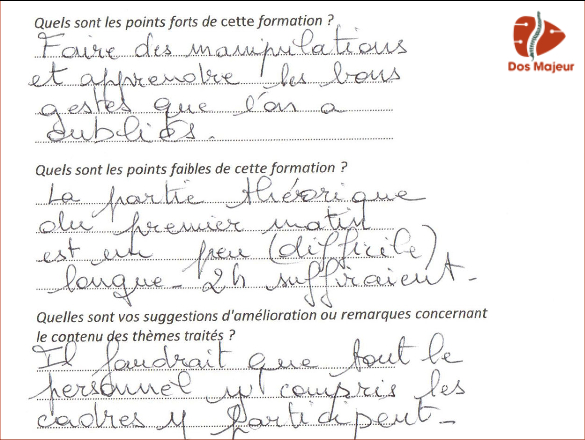 Quels sont les points forts de cette formation ?
Dos Majeur
Faire des manipulations
et apprendre les bons
gestes que l'on a
oubliés.
Quels sont les points faibles de cette formation ?
La partie théorique
du premier matin
est un peu (difficile)
longue - 2h suffiraient -
Quelles sont vos suggestions d'amélioration ou remarques concernant
le contenu des thèmes traités ?
Il faudrait que tout le
personnel y compris les
cadres y participent -